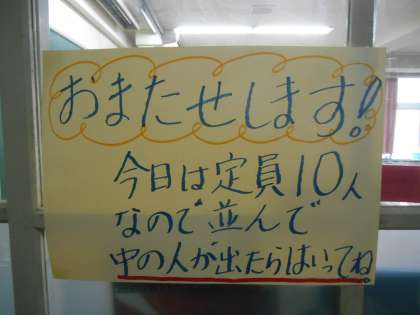 おまたせします!
今日は定員10人
なので並んで
中の人が出たらはいってね。